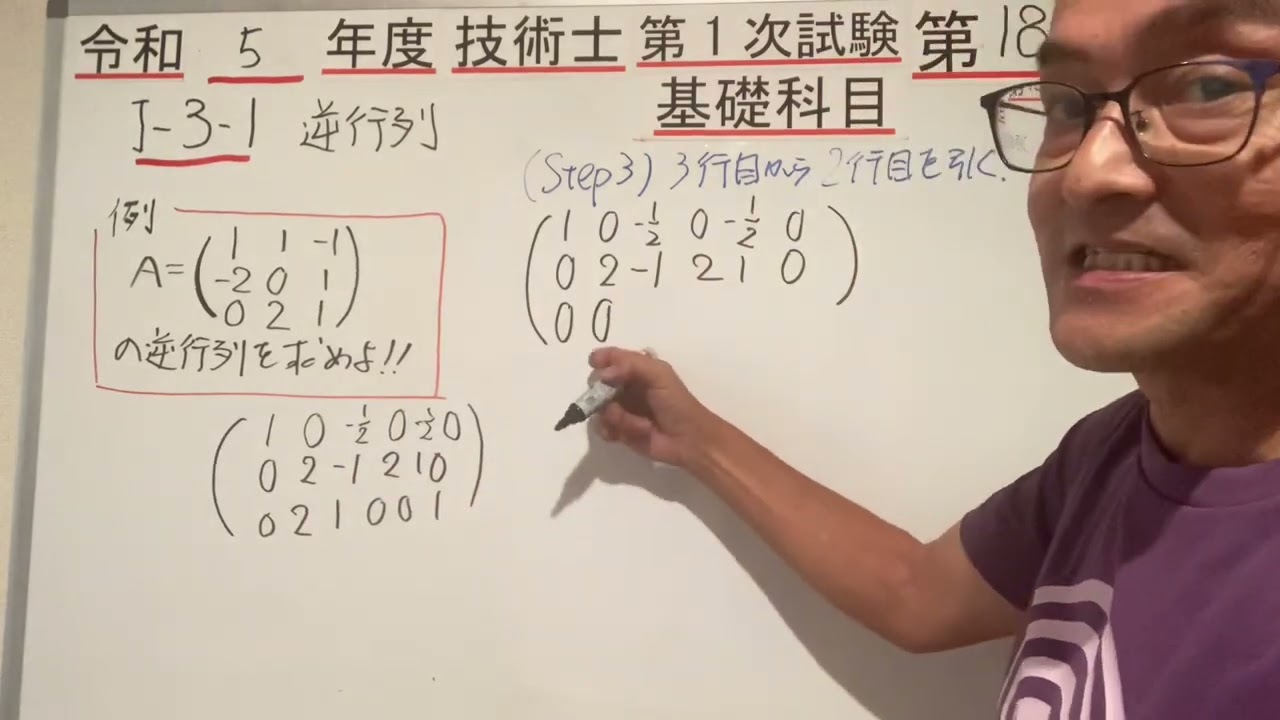 令和 5 年度 技術士 第1次試験 第18
基礎科目
I-3-1 逆行列
(Step3) 3行目から2行目を引く.
例
A=
1 1 -1
-2 0 1
0 2 1
の逆行列を求めよ!!
1 0 -1/2 0 -1/2 0
0 2 -1 2 1 0
0 0
1 0 -1/2 0 -1/2 0
0 2 -1 2 1 0
0 2 1 0 0 1